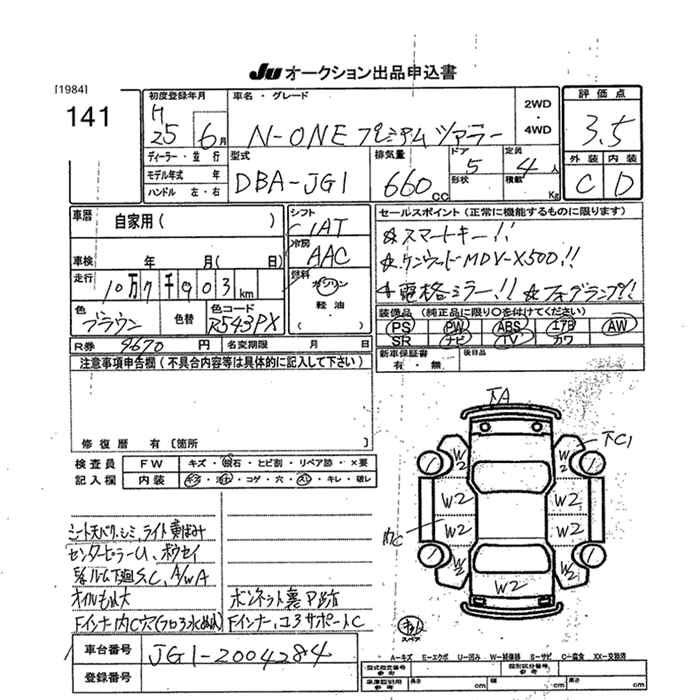 JU オークション出品申込書
[1984]
141
初度登録年月
H
25 6月
ディーラー・並行
モデル年式 年
ハンドル 左・右
車名・グレード
N-ONE プレミアムツアラー
2WD
・
4WD
型式
DBA-JG1
排気量
660cc
ドア 5
形状
定員
4人
積載 Kg
評価点
3.5
外装 内装
C D
車歴 自家用( )
車検 年 月( 日)
走行 10万7千903km
色 ブラウン 色替 色コード R543PX
シフト
IAT
冷房
AAC
燃料
ガソリン
軽油
( )
セールスポイント(正常に機能するものに限ります)
☆スマートキー!!
☆ケンウッドMDV-X500!!
☆電格ミラー!! ☆フォグランプ!
装備品(純正品に限り○を付けてください)
PS PW ABS エアB AW
SR ナビ TV カワ
新車保証書 後日品
有・無
R券 9670円 名変期限 月 日
注意事項申告欄(不具合内容等は具体的に記入して下さい)
修復歴 有〔箇所 〕
検査員
記入欄
FW キズ・飛石・ヒビ割・リペア跡・×要
内装 キズ・汚れ・コゲ・穴・スレ・キレ・破レ
シート天バリ、シミ、ライト黄ばみ
センターピラーU、ホウセイ
下廻S.C、A/WA
オイルもれ大
ボンネット裏P跡
Fインナー、コアサポートC
下A
下C1
W2
W2
W2
W2
W2
W2
W2
内C
スペア
A−キズ E−エクボ U−凹み W−補修跡 S−サビ C−腐食 XX−交換済
車台番号 JG1-2004284
登録番号
型式指定番号
参考
類別区分番号
参考
車庫証明用
参考
長 cm 幅 cm 高 cm